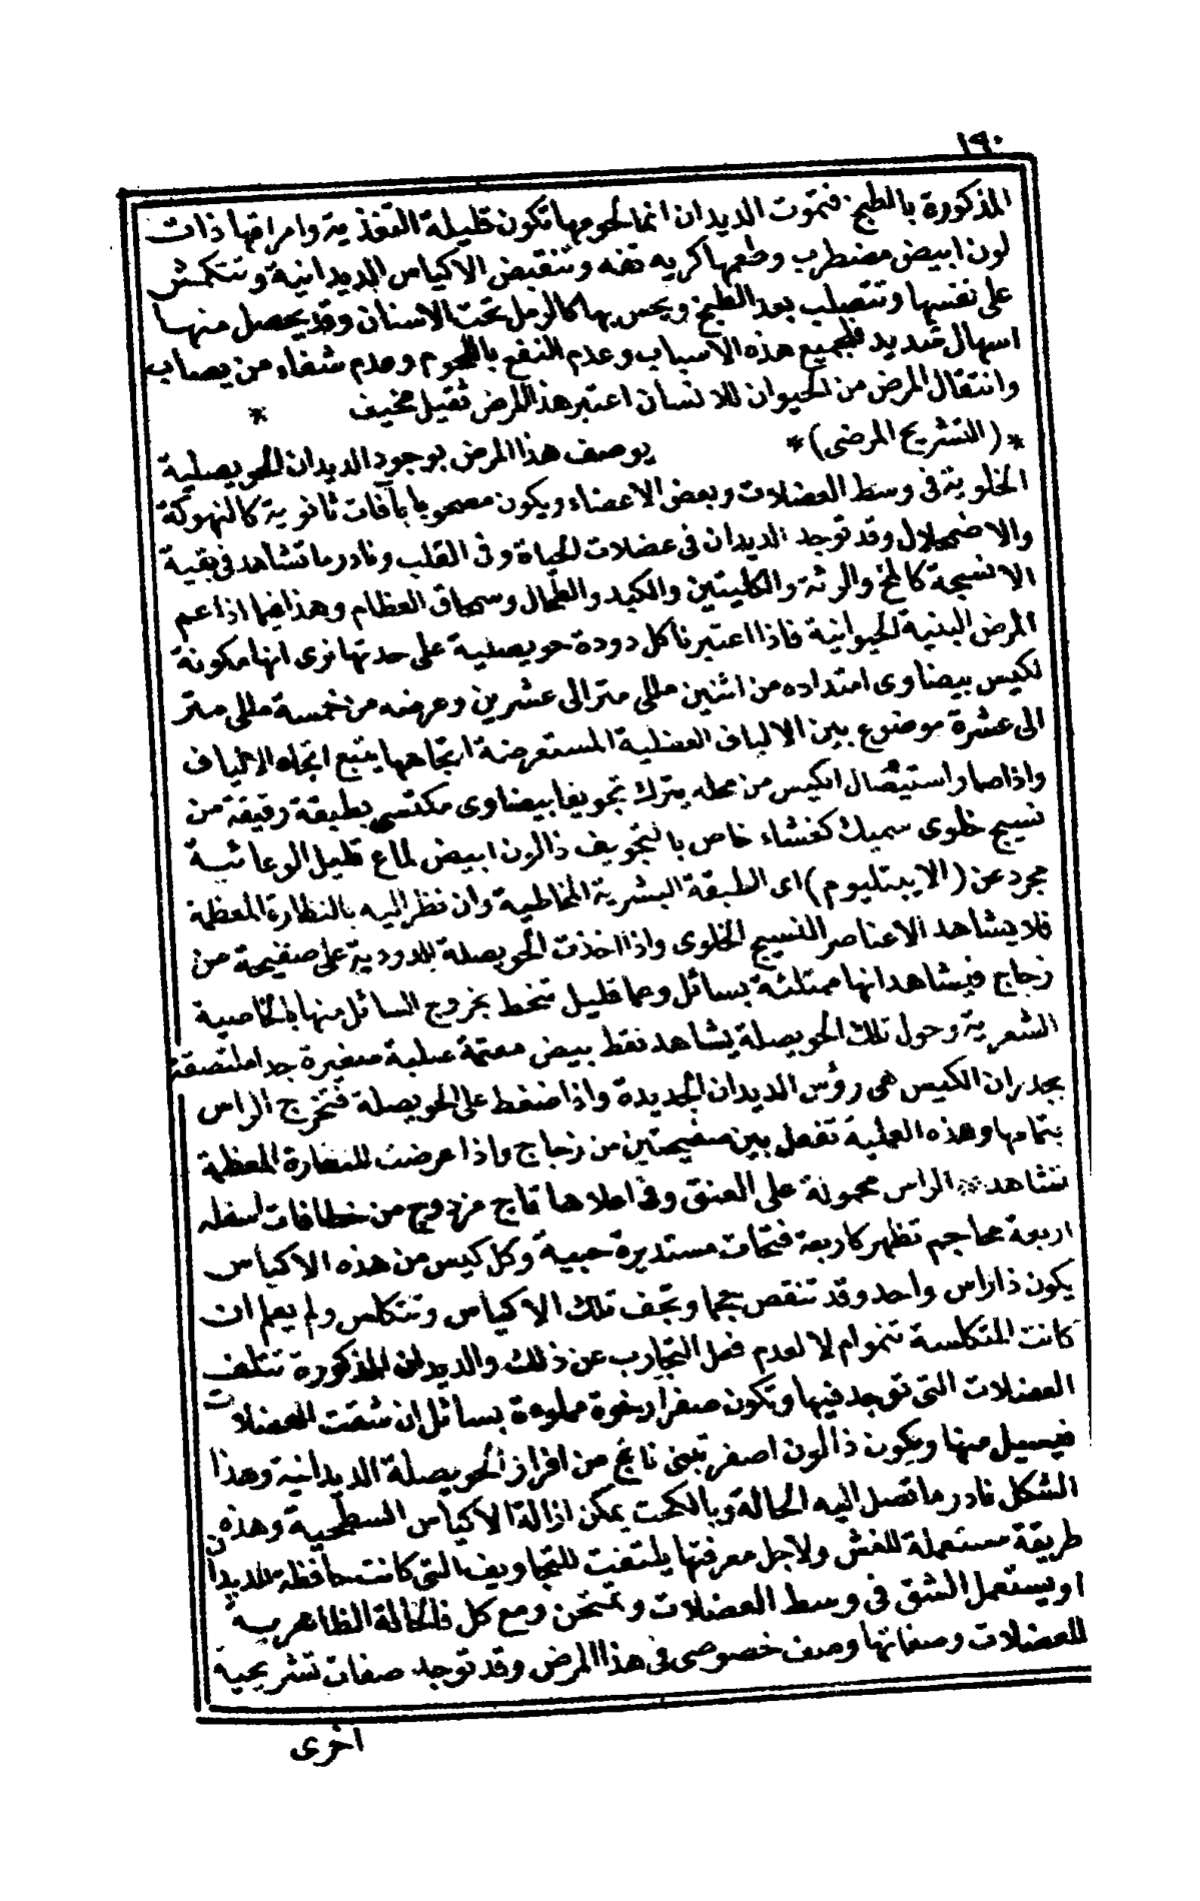 ١٩٠
المذكورة بالطبخ فتموت الديدان انما لحومها تكون قليلة التغذية وامراقها ذات
لون ابيض مضطرب وطعمها كريه تفه وتنقبض الاكياس الديدانية وتتكمش
على نفسها وتتصلب بعد الطبخ ويحس بها كالرمل تحت الاسنان وقد يحصل منها
اسهال شديد فلجميع هذه الاسباب وعدم النفع باللحوم وعدم شفاء من يصاب
وانتقال المرض من الحيوان للانسان اعتبر هذا المرض ثقيل مخيف *
*(التشريح المرضى)* يوصف هذا المرض بوجود الديدان الحويصلية
الخلوية فى وسط العضلات وبعض الاعضاء ويكون مصحوبا بآفات ثانوية كالنهوكة
والاضمحلال وقد توجد الديدان فى عضلات الحياة وفى القلب ونادر ما تشاهد فى بقية
الانسجة كالمخ والرئة والكليتين والكبد والطحال وسمحاق العظام وهذا فيما اذا عم
المرض البنية الحيوانية فاذا اعتبرنا كل دودة حويصلية على حدتها نرى انها مكونة
لكيس بيضاوى امتداده من اثنين مللى متر الى عشرين وعرضه من خمسة مللى متر
الى عشرة موضوع بين الالياف العضلية المستعرضة اتجاهها يتبع اتجاه الالياف
واذا صار استيصال الكيس من محله يترك تجويفا بيضاوى مكتسى بطبقة رقيقة من
نسيج خلوى سميك كغشاء خاص بالتجويف ذالون ابيض لماع قليل الوعائية
مجرد عن (الايبتليوم) اى الطبقة البشرية المخاطية وان نظر اليه بالنظارة المعظمة
فلا يشاهد الاعناصر النسيج الخلوى واذا اخذت الحويصلة الدودية على صفيحة من
زجاج فيشاهد انها ممتلئة بسائل وعما قليل تنحط بخروج السائل منها بالخاصية
الشعرية وحول تلك الحويصلة يشاهد نقط بيض معتمة صلبة صغيرة جدا ملتصقة
بجدران الكيس هى رؤس الديدان الجديدة واذا ضغط على الحويصلة فتخرج الراس
بتمامها وهذه العملية تفعل بين صفيحتين من زجاج واذا عرضت للنظارة المعظمة
تشاهد الراس محمولة على العنق وفى اعلاها تاج مزدوج من خطافات اسفله
اربعة محاجم تظهر كاربعة فتحات مستديرة حبيبة وكل كيس من هذه الاكياس
يكون ذاراس واحد وقد تنقص حجما وتجف تلك الاكياس وتتكلس ولم يعلم ان
كانت المتكلسة تنموام لا لعدم فعل التجارب عن ذلك والديدان المذكورة تتلف
العضلات التى توجد فيها وتكون صفرا رخوة مملوءة بسائل ان شقت العضلات
فيسيل منها ويكون ذالون اصفر تبنى ناتج من افراز الحويصلة الديدانية وهذا
الشكل نادر ما تصل اليه الحالة وبالكحت يمكن ازالة الاكياس السطحية وهذه
طريقة مستعملة للغش ولاجل معرفتها يلتفت للتجاويف التى كانت حافظة للديدان
او يستعمل الشق فى وسط العضلات وتمتحن ومع كل فالحالة الظاهرية
للعضلات وصفاتها وصف خصوصى فى هذا المرض وقد توجد صفات تشريحية
اخرى